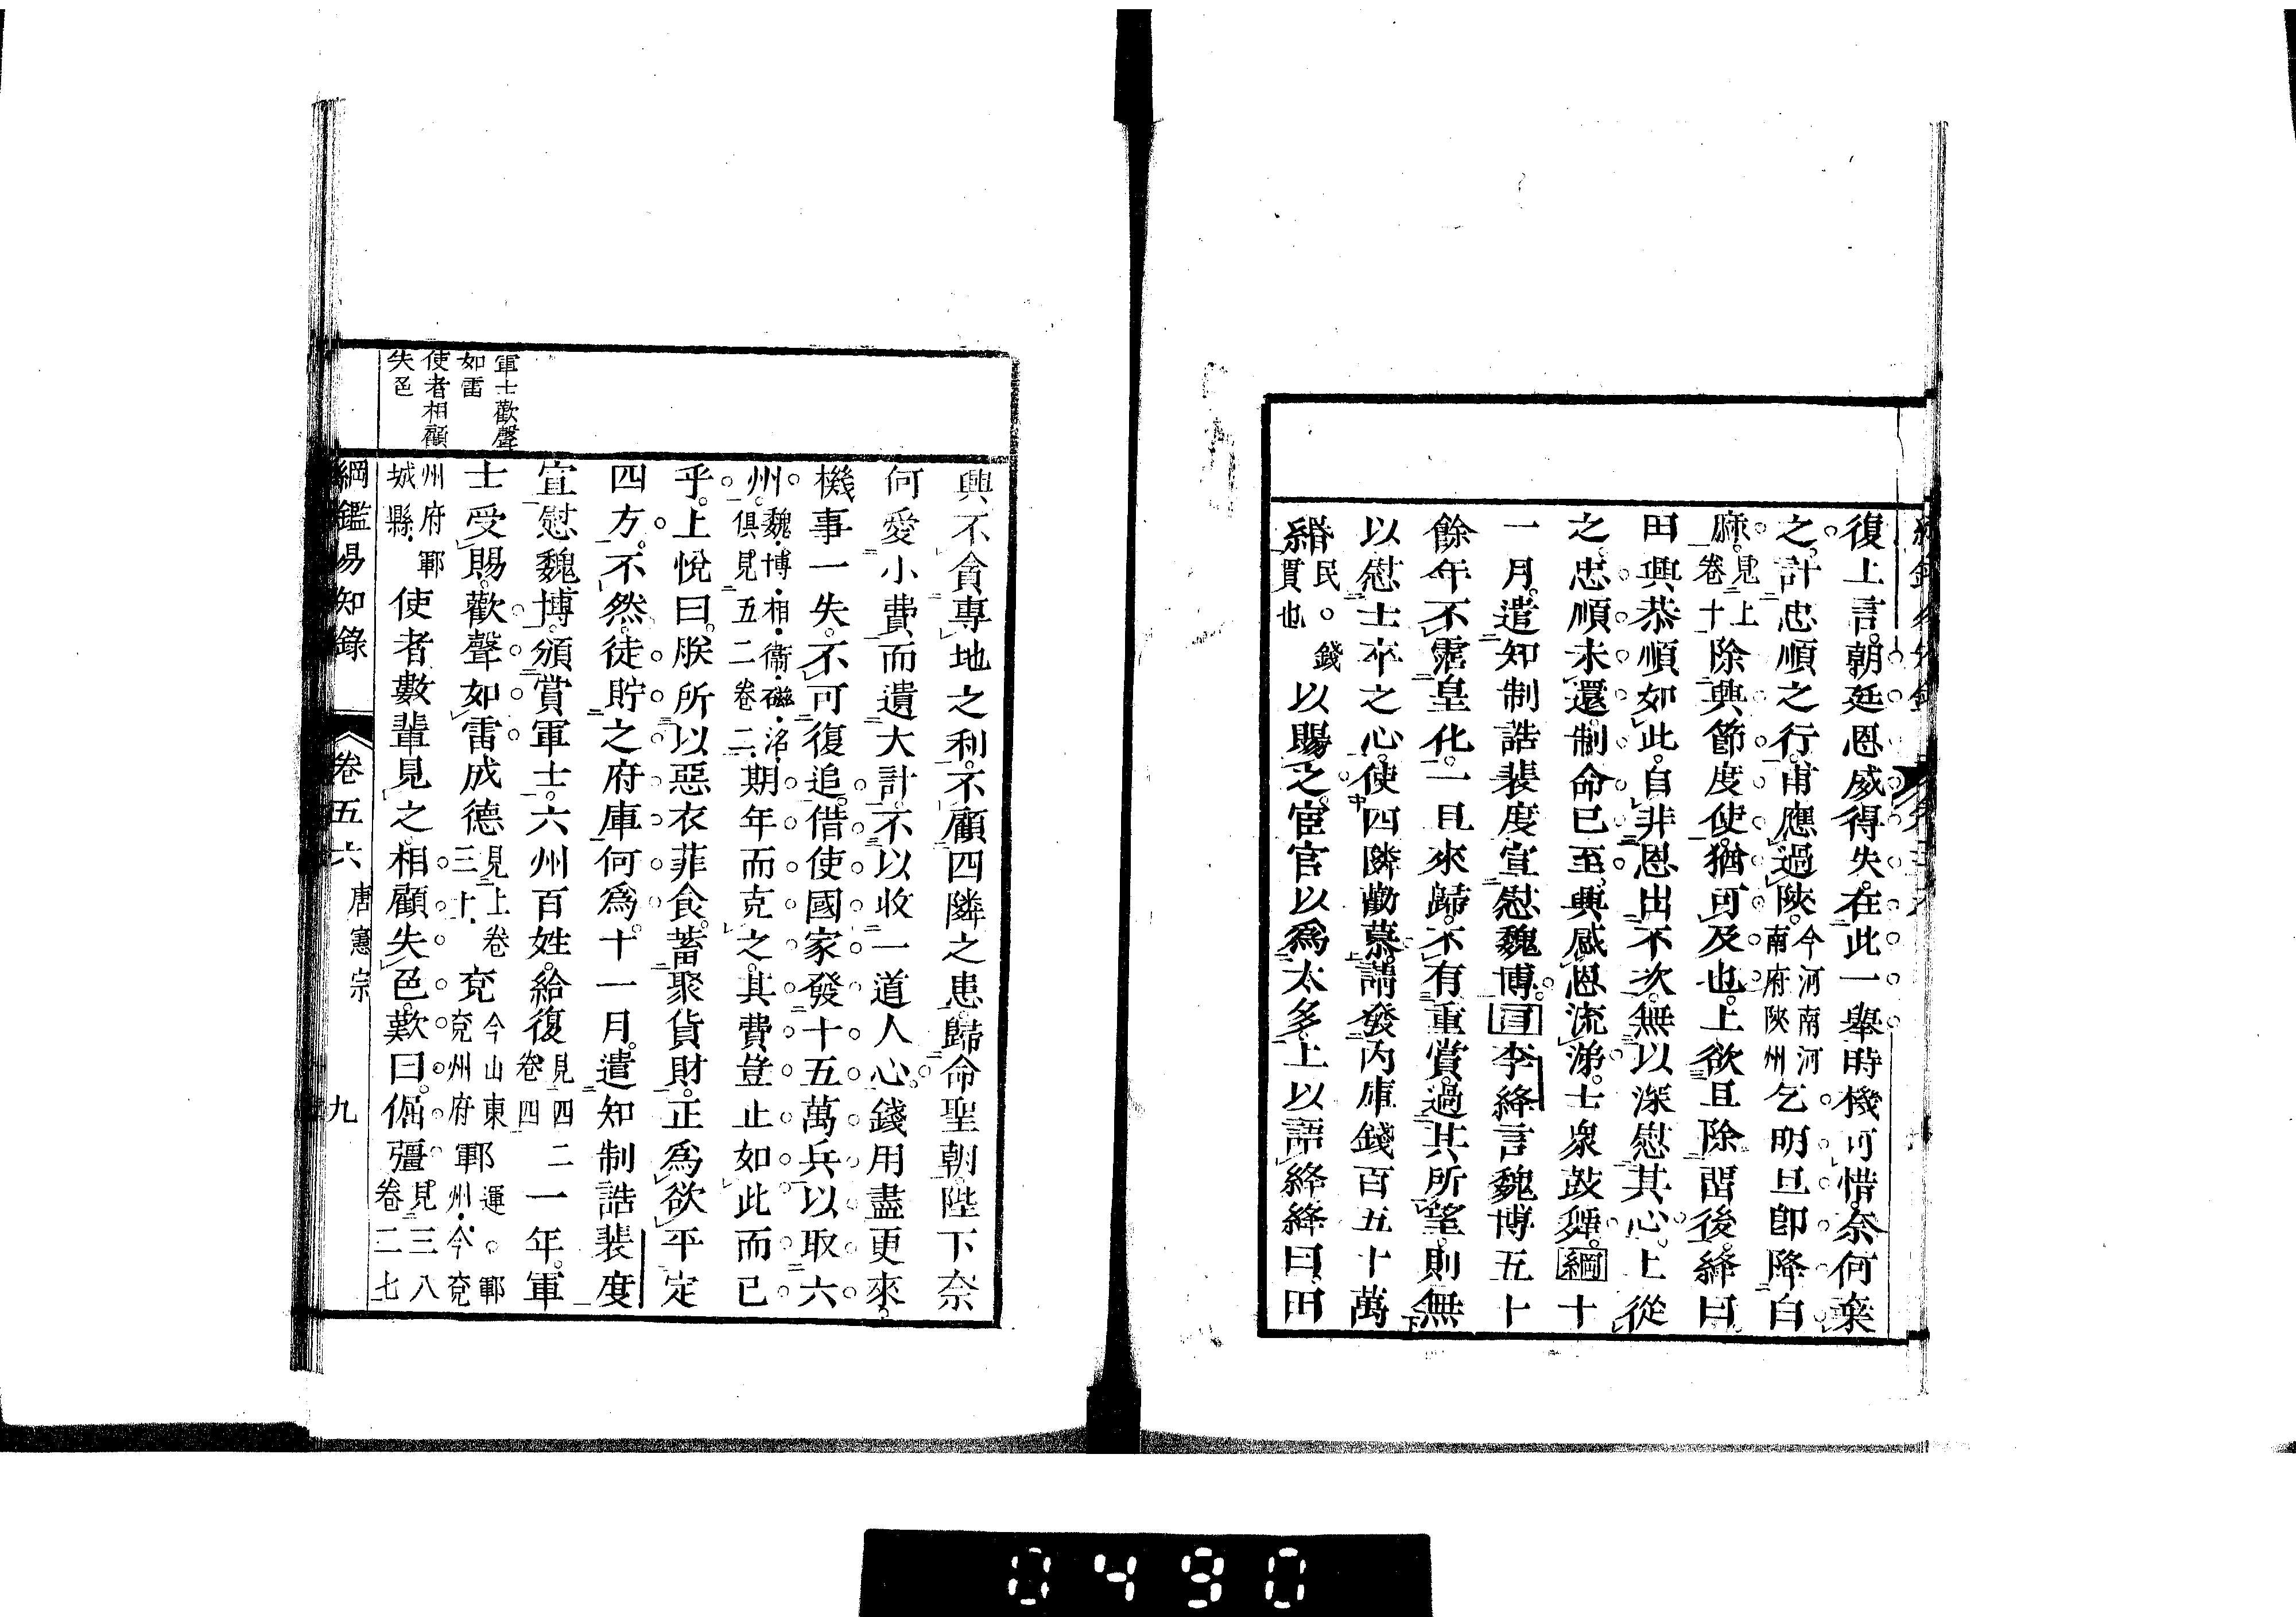 復上言朝廷恩威得失在此一舉時機可惜奈何棄
之計忠順之行甫應過陝今河南河南府陝州乞明旦卽降白
麻見上卷十除興節度使猶可及也上欲且除留後絳曰
田興恭順如此自非恩出不次無以深慰其心上從
之忠順未還制命已至興感恩流涕士衆鼓舞綱十
一月遣知制誥裴度宣慰魏博目李絳言魏博五十
餘年不霑皇化一旦來歸不有重賞過其所望則無
以慰士卒之心使四隣勸慕請發內庫錢百五十萬
緡民。錢貫也以賜之宦官以爲太多上以語絳絳曰田
興不貪專地之利不顧四隣之患歸命聖朝陛下奈
何愛小費而遺大計不以收一道人心錢用盡更來
機事一失不可復追借使國家發十五萬兵以取六
州魏·博·相·衞·磁·洺·俱見五二卷二期年而克之其費豈止如此而已
乎上悅曰朕所以惡衣菲食蓄聚貨財正爲欲平定
四方不然徒貯之府庫何爲十一月遣知制誥裴度
宣慰魏博頒賞軍士六州百姓給復見四二卷四一年軍
士受賜歡聲如雷成德見上卷三十兗今山東兗州府鄆運。鄆州今兗
州府鄆城縣使者數輩見之相顧失色歎曰倔彊見三八卷二七
軍士歡聲
如雷
使者相顧
失色
綱鑑易知錄 卷五六 唐憲宗 九
0490